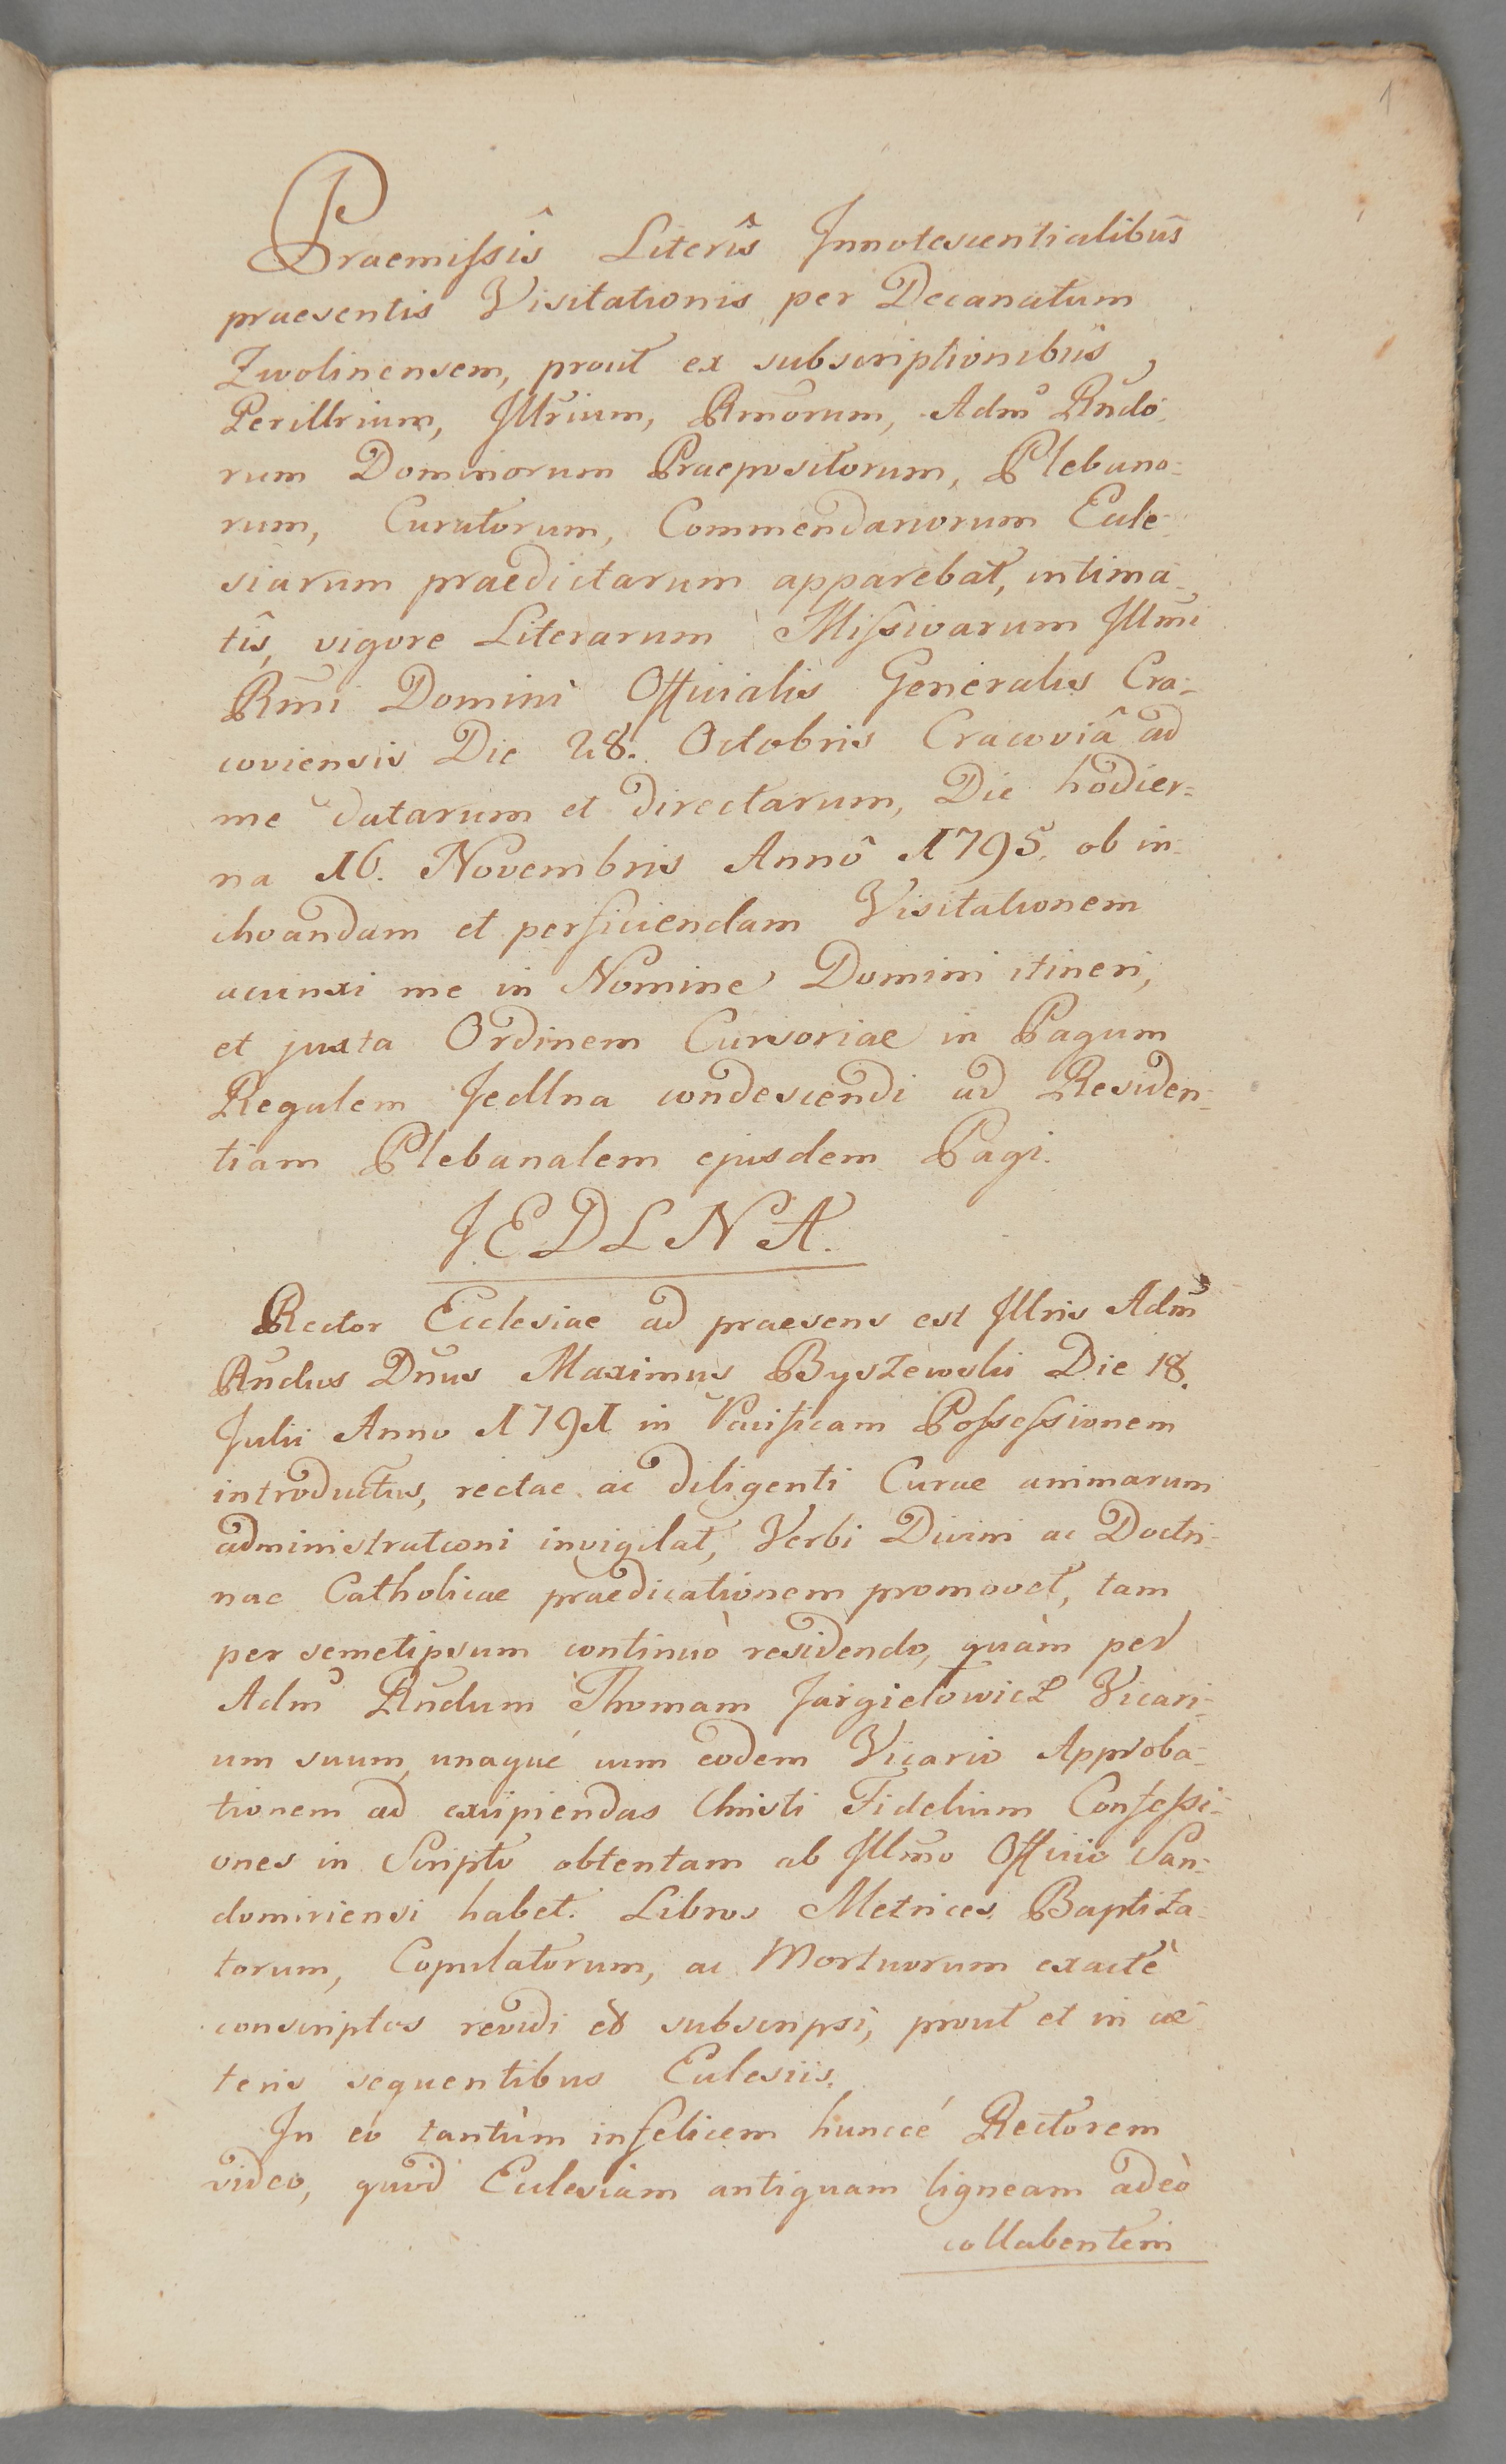 1
Praemissîs Literîs Innotescentialibûs
praesentis Visitationis per Decanatum
Zwolinensem, prout ex subscriptionibûs
Perillrium, Illrium, Rmorum, Adm Rndo-
rum Dominorum Praepositorum, Plebano-
rum, Curatorum, Commendariorum Eccle-
siarum praedictarum apparebat, intima-
tîs, vigore Literarum Missivarum Illmi
Rmi Domini Officialis Generalis Cra-
coviensis Die 28. Octobris Cracoviâ ad
me datarum et directarum, Die hodier-
na 16. Novembris Annô 1795. ob in-
choandam et perficiendam Visitationem
accinxi me in Nomine Domini itineri,
et juxta Ordinem Cursoriae in Pagum
Regalem Jedlna condescendi ad Residen-
tiam Plebanalem ejusdem Pagi.
JEDLNA.
Rector Ecclesiae ad praesens est Illris Adm
Rndus Dnus Maximus Byszewski Die 18.
Julii Anno 1791 in Pacificam Possessionem
introductus, rectae ac diligenti Curae animarum
administrationi invigilat, Verbi Divini ac Doctri-
nae Catholicae praedicationem promovet, tam
per semetipsum continuò residendo, quàm per
Adm Rndum Thomam Jargiełowicz Vicari-
um suum, unaqué cum eodem Vicario Approba-
tionem ad excipiendas Christi Fidelium Confessi-
ones in Scripto obtentam ab Illmo Officio San-
domiriensi habet. Libros Metrices Baptiza-
torum, Copulatorum, ac Mortuorum exactè
conscriptos revidi et subscripsi, prout et in cae-
teris sequentibus Ecclesiis.
In eò tantùm infelicem huncce Rectorem
video, quod Ecclesiam antiquam ligneam adeò
collabentem